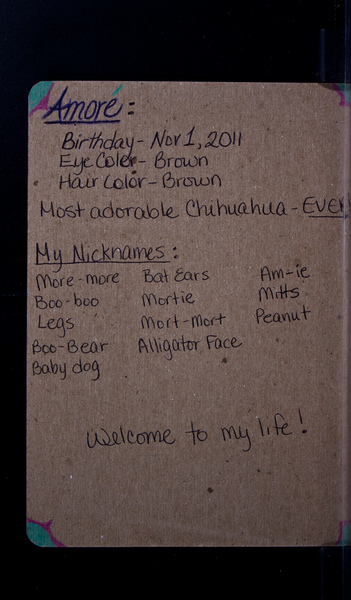 Amoré:
Birthday - Nov 1, 2011
Eye Color - Brown
Hair Color - Brown
Most adorable Chihuahua - EVER
My Nicknames:
More-more Bat Ears Am-ie
Boo-boo Mortie Mitts
Legs Mort-Mort Peanut
Boo-Bear Alligator Face
Baby dog
Welcome to my life!